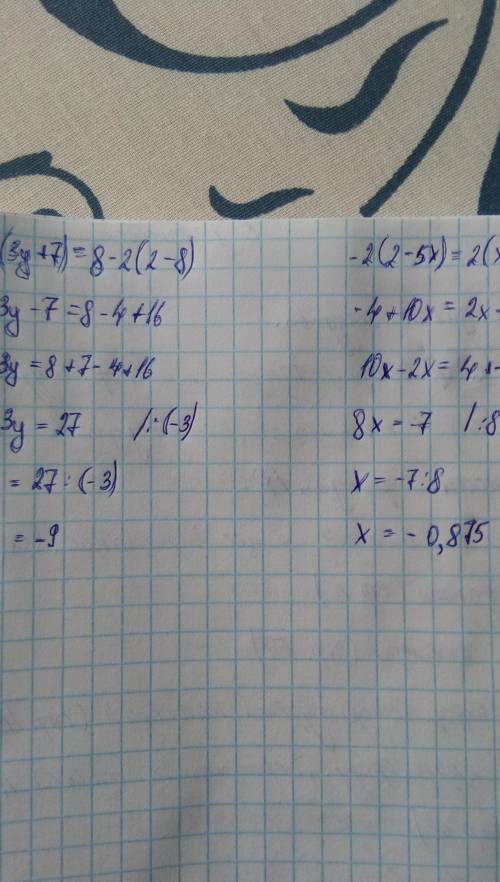 (3y+7)=8-2(2-8)
3y-7=8-4+16
3y=8+7-4+16
3y=27 /:(-3)
=27:(-3)
=-9
-2(2-5x)=2(x
-4+10x=2x-
10x-2x=4+-
8x=-7 /:8
x=-7:8
x=-0,875